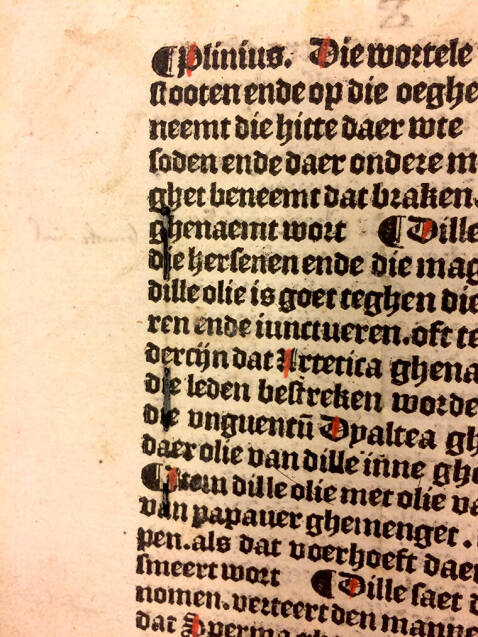 ¶Plinius. Die wortele
stooten ende op die oeghe
neemt die hitte daer wte
soden ende daer ondere m
ghet beneemt dat braken
ghenaemt wort ¶Dille
die hersenen ende die mag
dille olie is goet teghen die
ren ende iunctueren. oft te
dercijn dat Artetica ghena
die leden bestreken worde
die vnguentū Dyaltea gh
daer olie van dille inne ghe
¶Item dille olie met olie va
van papauer ghemenget.
pen. als dat voerhoeft daer
smeert wort ¶Dille saet
nomen. verteert den manne
dat Sperma